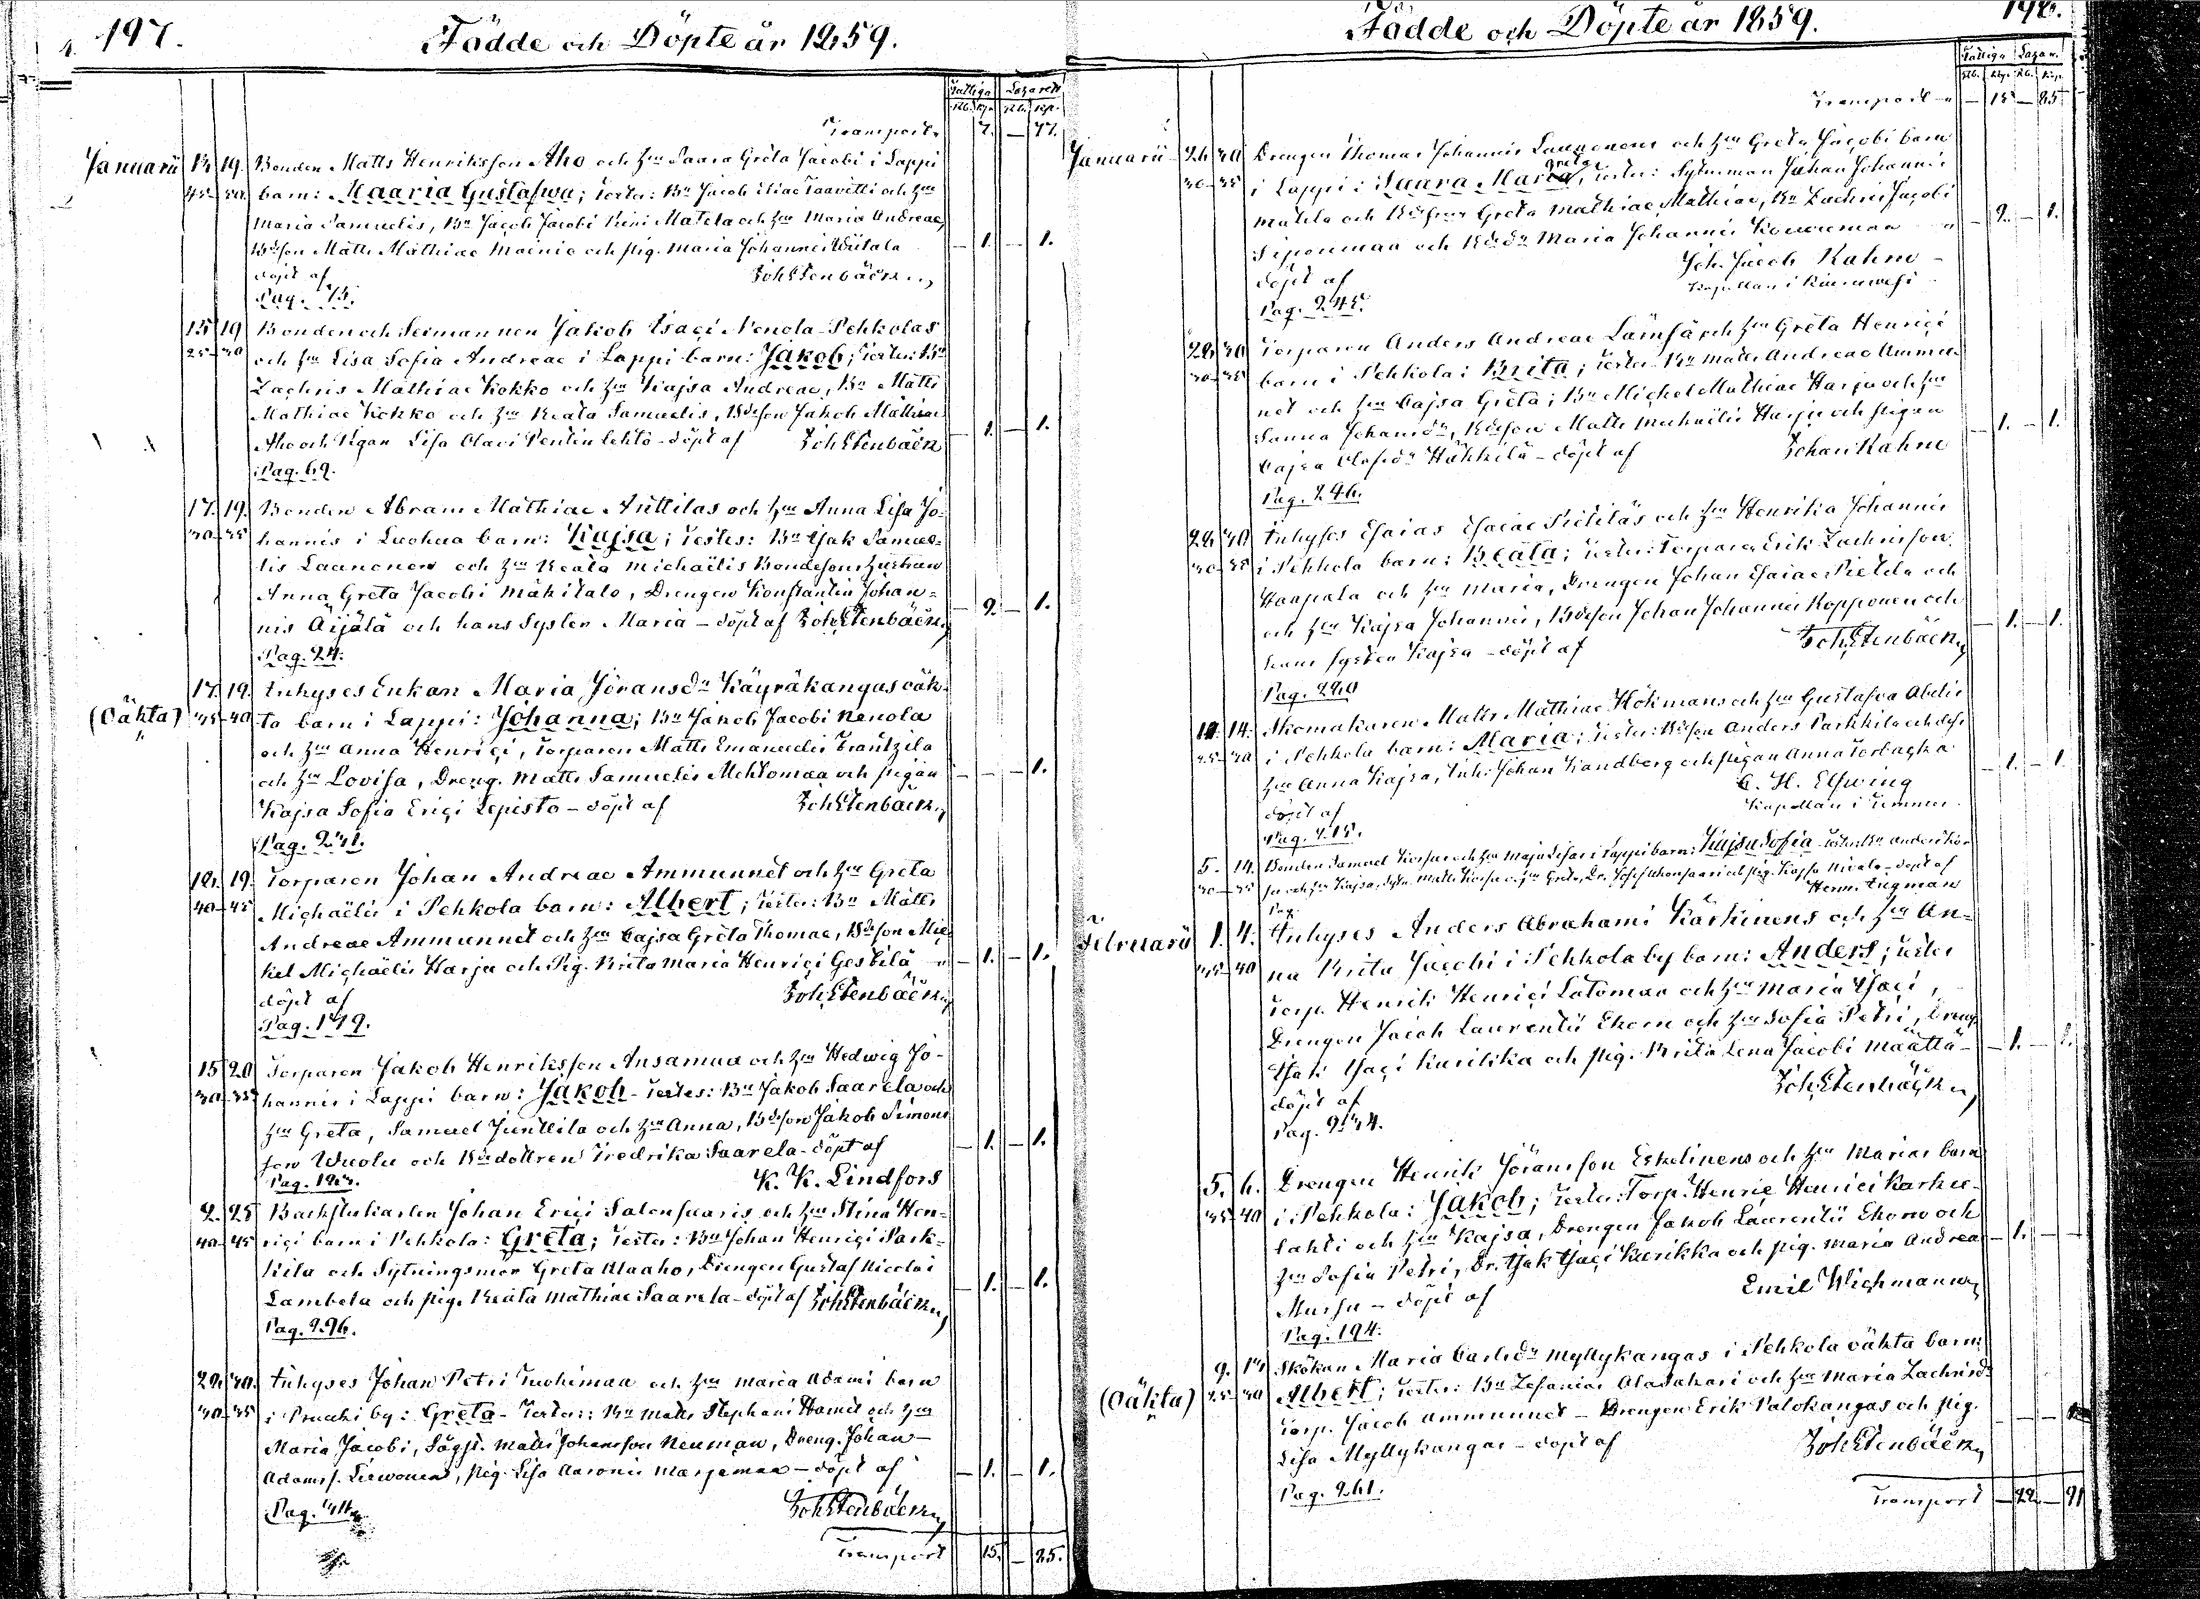 197.
Födde och Döpte år 1859.
Fattiga Lazarett
Transport 7. — 77.
Januarii 13. 19. Bonden Matts Henriksson Aho och hu Saara Greta Jacobi i Lappi
barn: Maaria Gustafwa; Testes: Bn Jacob Eliae Taavitti och hu
Maria Samuelis, Bn Jacob Jacobi Matela och hu Maria Andreae,
Bdeson Matts Mathiae Mainio och pig. Maria Johannis Wiitala — 1. — 1.
döpt af Joh Stenbäck
Pag. 75.
15 19 Bonden och Jakob Isaçi Nenola Pehkolas
25 30 och hu Lisa Sofia Andreae i Lappi barn: Jakob; Testes: Bn
Zachris Mathiae Kokko och hu Kajsa Andreae, Bn Matts
Mathiae Kokko och hu Beata Samuelis, Bdeson Jakob Mathiae
Aho och Pigan Lisa Olavi Pentinlehto – döpt af Joh Stenbäck — 1. — 1.
Pag. 69.
17. 19. Bonden Abram Mathiae Anttilas och hu Anna Lisa Jo-
30 35 hannis i Luohua barn: Kajsa; Testes: Bn Isak Samue-
lis Laanonen och hu Beata Michaëlis Bondesons hustrun
Anna Greta Jacobi Mäkitalo, Drengen Konstantin Johan=
nis Äijälä och hans Syster Maria – döpt af Joh Stenbäck — 2. — 1.
Pag. 24.
17. 19. Inhyses Enkan Maria Jöransdr Käyräkangas oäk-
(Oäkta) 35 40 ta barn i Lappi: Johanna; Bn Jakob Jacobi Nenola
och hu Anna Henriçi, Torparen Matts Emanuelis Trautzila
och hu Lovisa, Dreng. Matts Samuelis Mehtomaa och pigan — 1.
Kajsa Sofia Eriçi Lepisto – döpt af Joh Stenbäck
Pag. 231.
18. 19. Torparen Johan Andreae Ammunnet och hu Greta
40 45 Michaëlis i Pehkola barn: Albert; Testes: Bn Matts
Andreae Ammunnet och hu Cajsa Greta Thomae, Bdeson Mic-
kel Michaëlis Harju och Pig. Brita Maria Henriçi Gestilä — 1. — 1.
döpt af Joh Stenbäck
Pag. 179.
15 20 Torparen Jakob Henriksson Ansamaa och hu Hedwig Jo-
30 35 hannis i Lappi barn: Jakob – Testes: Bn Jakob Saarela och
hu Greta, Samuel Junttila och hu Anna, Bdeson Jakob Simons
son Wuolu och Bdedottren Fredrika Saarela – döpt af — 1. — 1.
Pag. 123. K. K. Lindfors
2. 25 Backstukarlen Johan Eriçi Salonsaaris och hu Stina Hen-
40 45 riçi barn i Pehkola: Greta; Testes: Bn Johan Henriçi Park-
kila och Sytningsmor Greta Alaaho, Drengen Gustaf Nicolai
Lambela och pig. Beata Mathiae Saarela – döpt af Joh Stenbäck — 1. — 1.
Pag. 296.
22. 30. Inhyses Johan Petri Tuohimaa och hu Maria Adami barn
30 35 i Pruuki by: Greta – Testes: Bn Matts Stephani Hamet och hu
Maria Jacobi, Matts Johansson Neuman, Dreng. Johan
Adams. , pig. Lisa Aaronis Marjamaa – döpt af — 1. — 1.
Pag. Joh Stenbäck
Transport 15. — 85.
198.
Födde och Döpte år 1859.
Fattiga Lazar.
Transport — 15 — 85
Januarii 26 30 Drengen Thomas Johannis Laanonens och hu Greta Jacobi barn
30 35 i Lappi: Saara Greta, Testes: Sytn.man Johan Johannis
Matela och Greta Mathiae Mathiae, Bn Zachris Jacobi
och Bdedr Maria Johannis — 2. — 1.
döpt af Joh. Jacob Rahm
Kapellan i
Pag. 245.
22. 30 Torparen Anders Andreae Lämsä och hu Greta Henriçi
30 35 barn i Pehkola: Brita; Testes: Bn Matts Andreae Ammun-
net och hu Cajsa Greta; Bn Michel Mathiae Harju och hu
Sanna Johansdr, Bdeson Matts Michaëlis Harju och pigan — 1. — 1.
Cajsa Olofsdr Häkkilä – döpt af Johan Rahm
Pag. 246.
22. 30 Inhyses Esaias Esaiae Pietiläs och hu Henrika Johannis
30 35 i Pehkola barn: Beata; Testes: Torparen Erik Zachrisson
Haapala och hu Maria, Drengen Johan Esaiae Pietilä och
och hu Kajsa Johannis, Bdeson Johan Johannis Kopponen och — 1. — 1.
hans syster Kajsa – döpt af Joh Stenbäck
Pag. 220
11. 14. Skomakaren Matts Mathiae Hökmans och hu Gustafva Abelis
25 30 i Pehkola barn: Maria; Testes: Bdeson Anders Parkkila och dess
hu Anna Kajsa, Inh. Johan Sandberg och pigan Anna — 1. — 1.
döpt af C. H. Elfwing
Kapellan i Temmes
Pag. 215.
5. 14. Bonden Samuel Korhu och hu Maja Lisas i Lappi barn: Kajsa Sofia – Testes: Bn Anders Kor-
30 35 hu och hu Kajsa, Sytn. Matts Korhu o. hu Greta, Dr. och pig. Kajsa – döpt af
Pag. Herm. Ingman
Februarii 1. 4. Inhyses Anders Abrahami Kärkinens och hu An=
35 40 na Brita Jacobi i Pehkola by barn: Anders; Testes
Torp. Henrik Henriçi Latomaa och hu Maria Isaçi,
Drengen Jacob Laurentii Ekorn och hu Sofia Petri, Dreng
Isak Isaçi Kurikka och pig. Brita Lena Jacobi Määttä — 1. — 1.
döpt af Joh Stenbäck
Pag.
5. 6. Drengen Henrik Jöransson Eskelinens och hu Marias barn
35 40 i Pehkola: Jakob; Testes: Torp. Henric Henrici Karhu-
lahti och hu Kajsa, Drengen Jakob Laurentii Ekorn och
hu Sofia Petri, Dr. Isak Isaçi Kurikka och pig. Maria Andrea — 1. —
Mursu – döpt af Emil Wichmann
Pag. 194.
9. 13 Skökan Maria Carlsdr Myllykangas i Pehkola oäkta barn:
(Oäkta) 25 30 Albert; Testes: Bn Zefanias Alasahari och hu Maria Zachrisdr
Torp. Jacob Ammunnet – Drengen Erik Palokangas och pig.
Lisa Myllykangas – döpt af Joh Stenbäck
Pag. 261.
Transport — 22 — 91